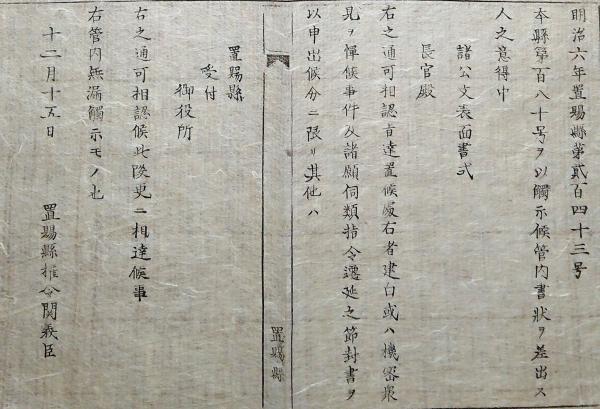 明治六年置賜縣第貳百四十三号
本縣第百八十号ヲ以觸示候管内書狀ヲ差出ス
人之意得中
諸公文表面書式
長官殿
右之通可相認旨達置候處右者建白或ハ機密衆
見ヲ憚候事件及諸願伺類指令遷延之節封書ヲ
以申出候分ニ限リ其他ハ
置賜縣
置賜縣
受付
御役所
右之通可相認候此段更ニ相達候事
右管内無漏觸示モノ也
十二月十五日
置賜縣權令関義臣